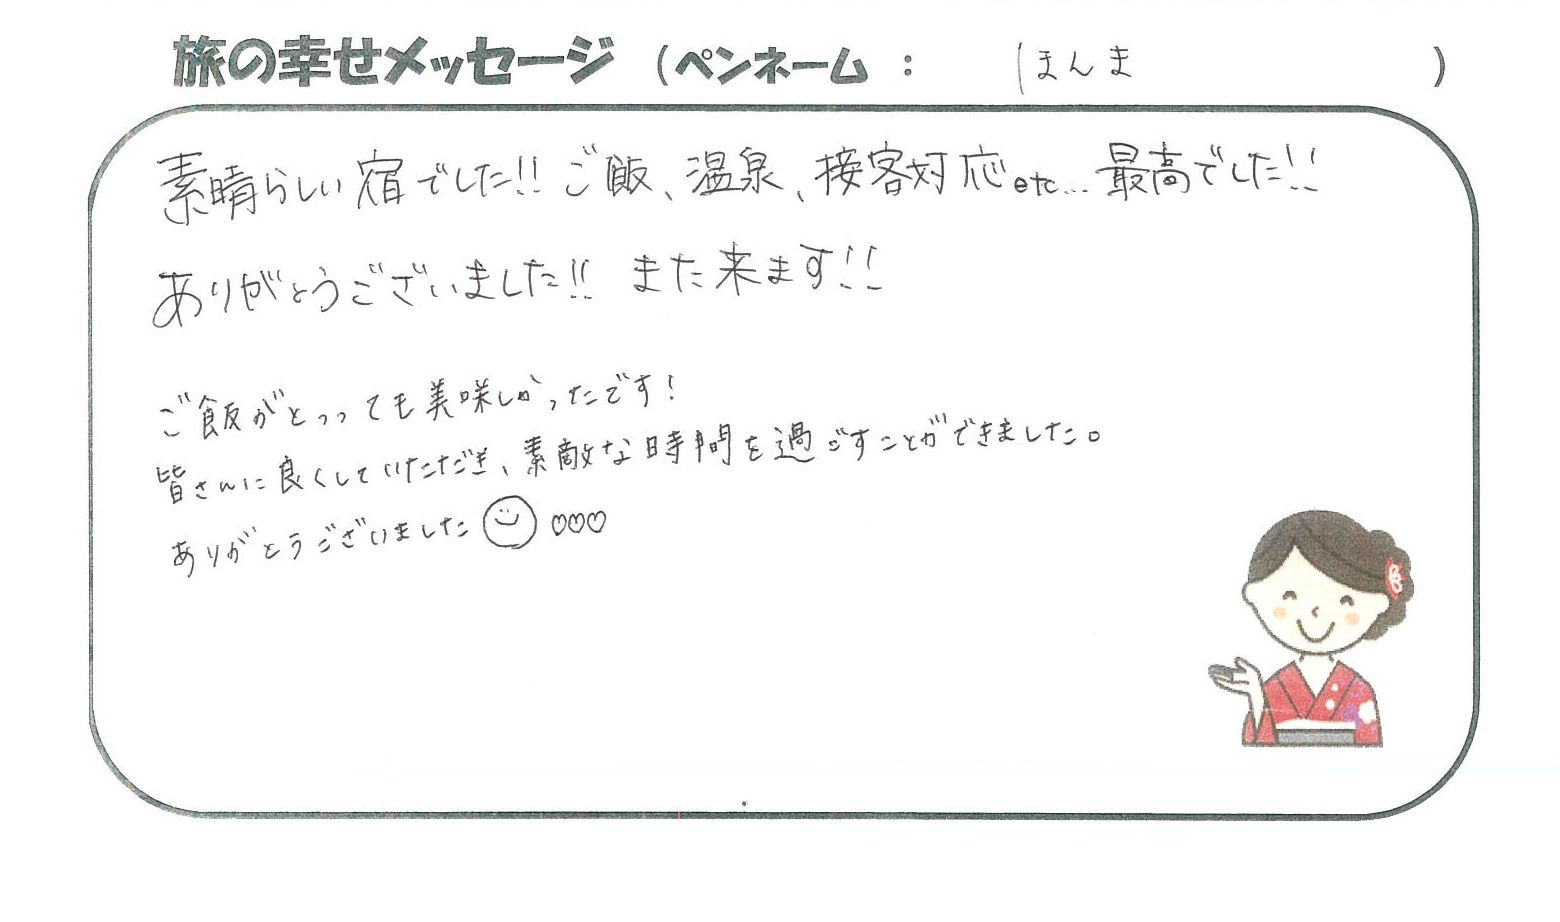 旅の幸せメッセージ （ペンネーム ： ほんま ）
素晴らしい宿でした!! ご飯、温泉、接客対応etc... 最高でした!!
ありがとうございました!! また来ます!!
ご飯がとっっても美味しかったです!
皆さんに良くしていただき、素敵な時間を過ごすことができました。
ありがとうございました ♡♡♡